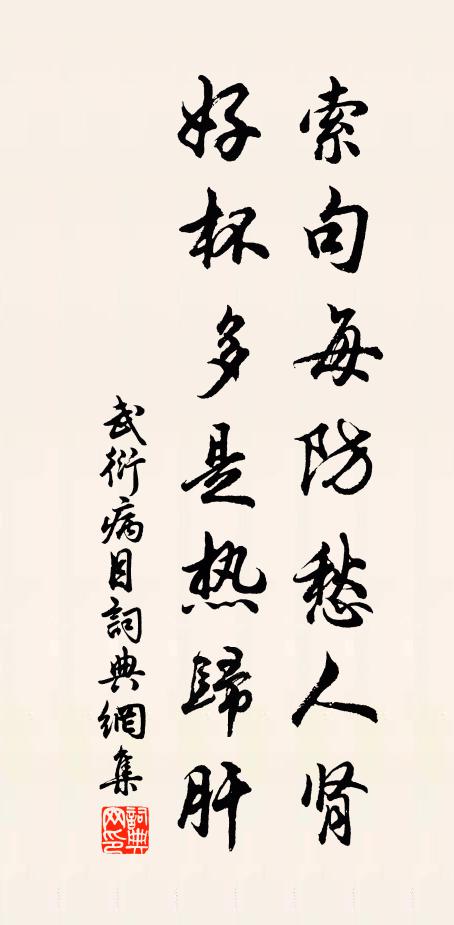 索句每防愁人肾
好杯多是热歸肝
武衍病目詞典網集
詞典网印